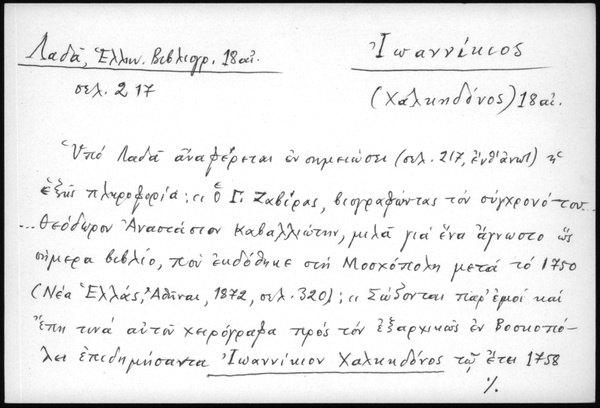 Λαδᾶ, Ἑλλην. Βιβλιογρ. 18 αἰ.
σελ. 217
Ἰωαννίκιος
(Χαλκηδόνος) 18 αἰ.
Ὑπό Λαδᾶ ἀναφέρεται ἐν σημειώσει (σελ. 217, ἐνθ' ἀνωτ) ἡ
ἑξῆς πληροφορία: "ὁ Γ. Ζαβίρας, βιογραφώντας τόν σύγχρονό του...
... Θεόδωρον Ἀναστάσιον Καβαλλιώτην, μιλᾶ γιά ἕνα ἄγνωστο ὥς
σήμερα βιβλίο, πού ἐκδόθηκε στή Μοσχόπολη μετά τό 1750
(Νέα Ἑλλάς, Ἀθῆναι, 1872, σελ. 320): "Σώζονται παρ' ἐμοί καί
ἔπη τινά αὐτοῦ χειρόγραφα πρός τόν ἐξαρχικῶς ἐν Βοσκοπό-
λει ἐπιδημήσαντα Ἰωαννίκιον Χαλκηδόνος τῷ ἔτει 1758
./.